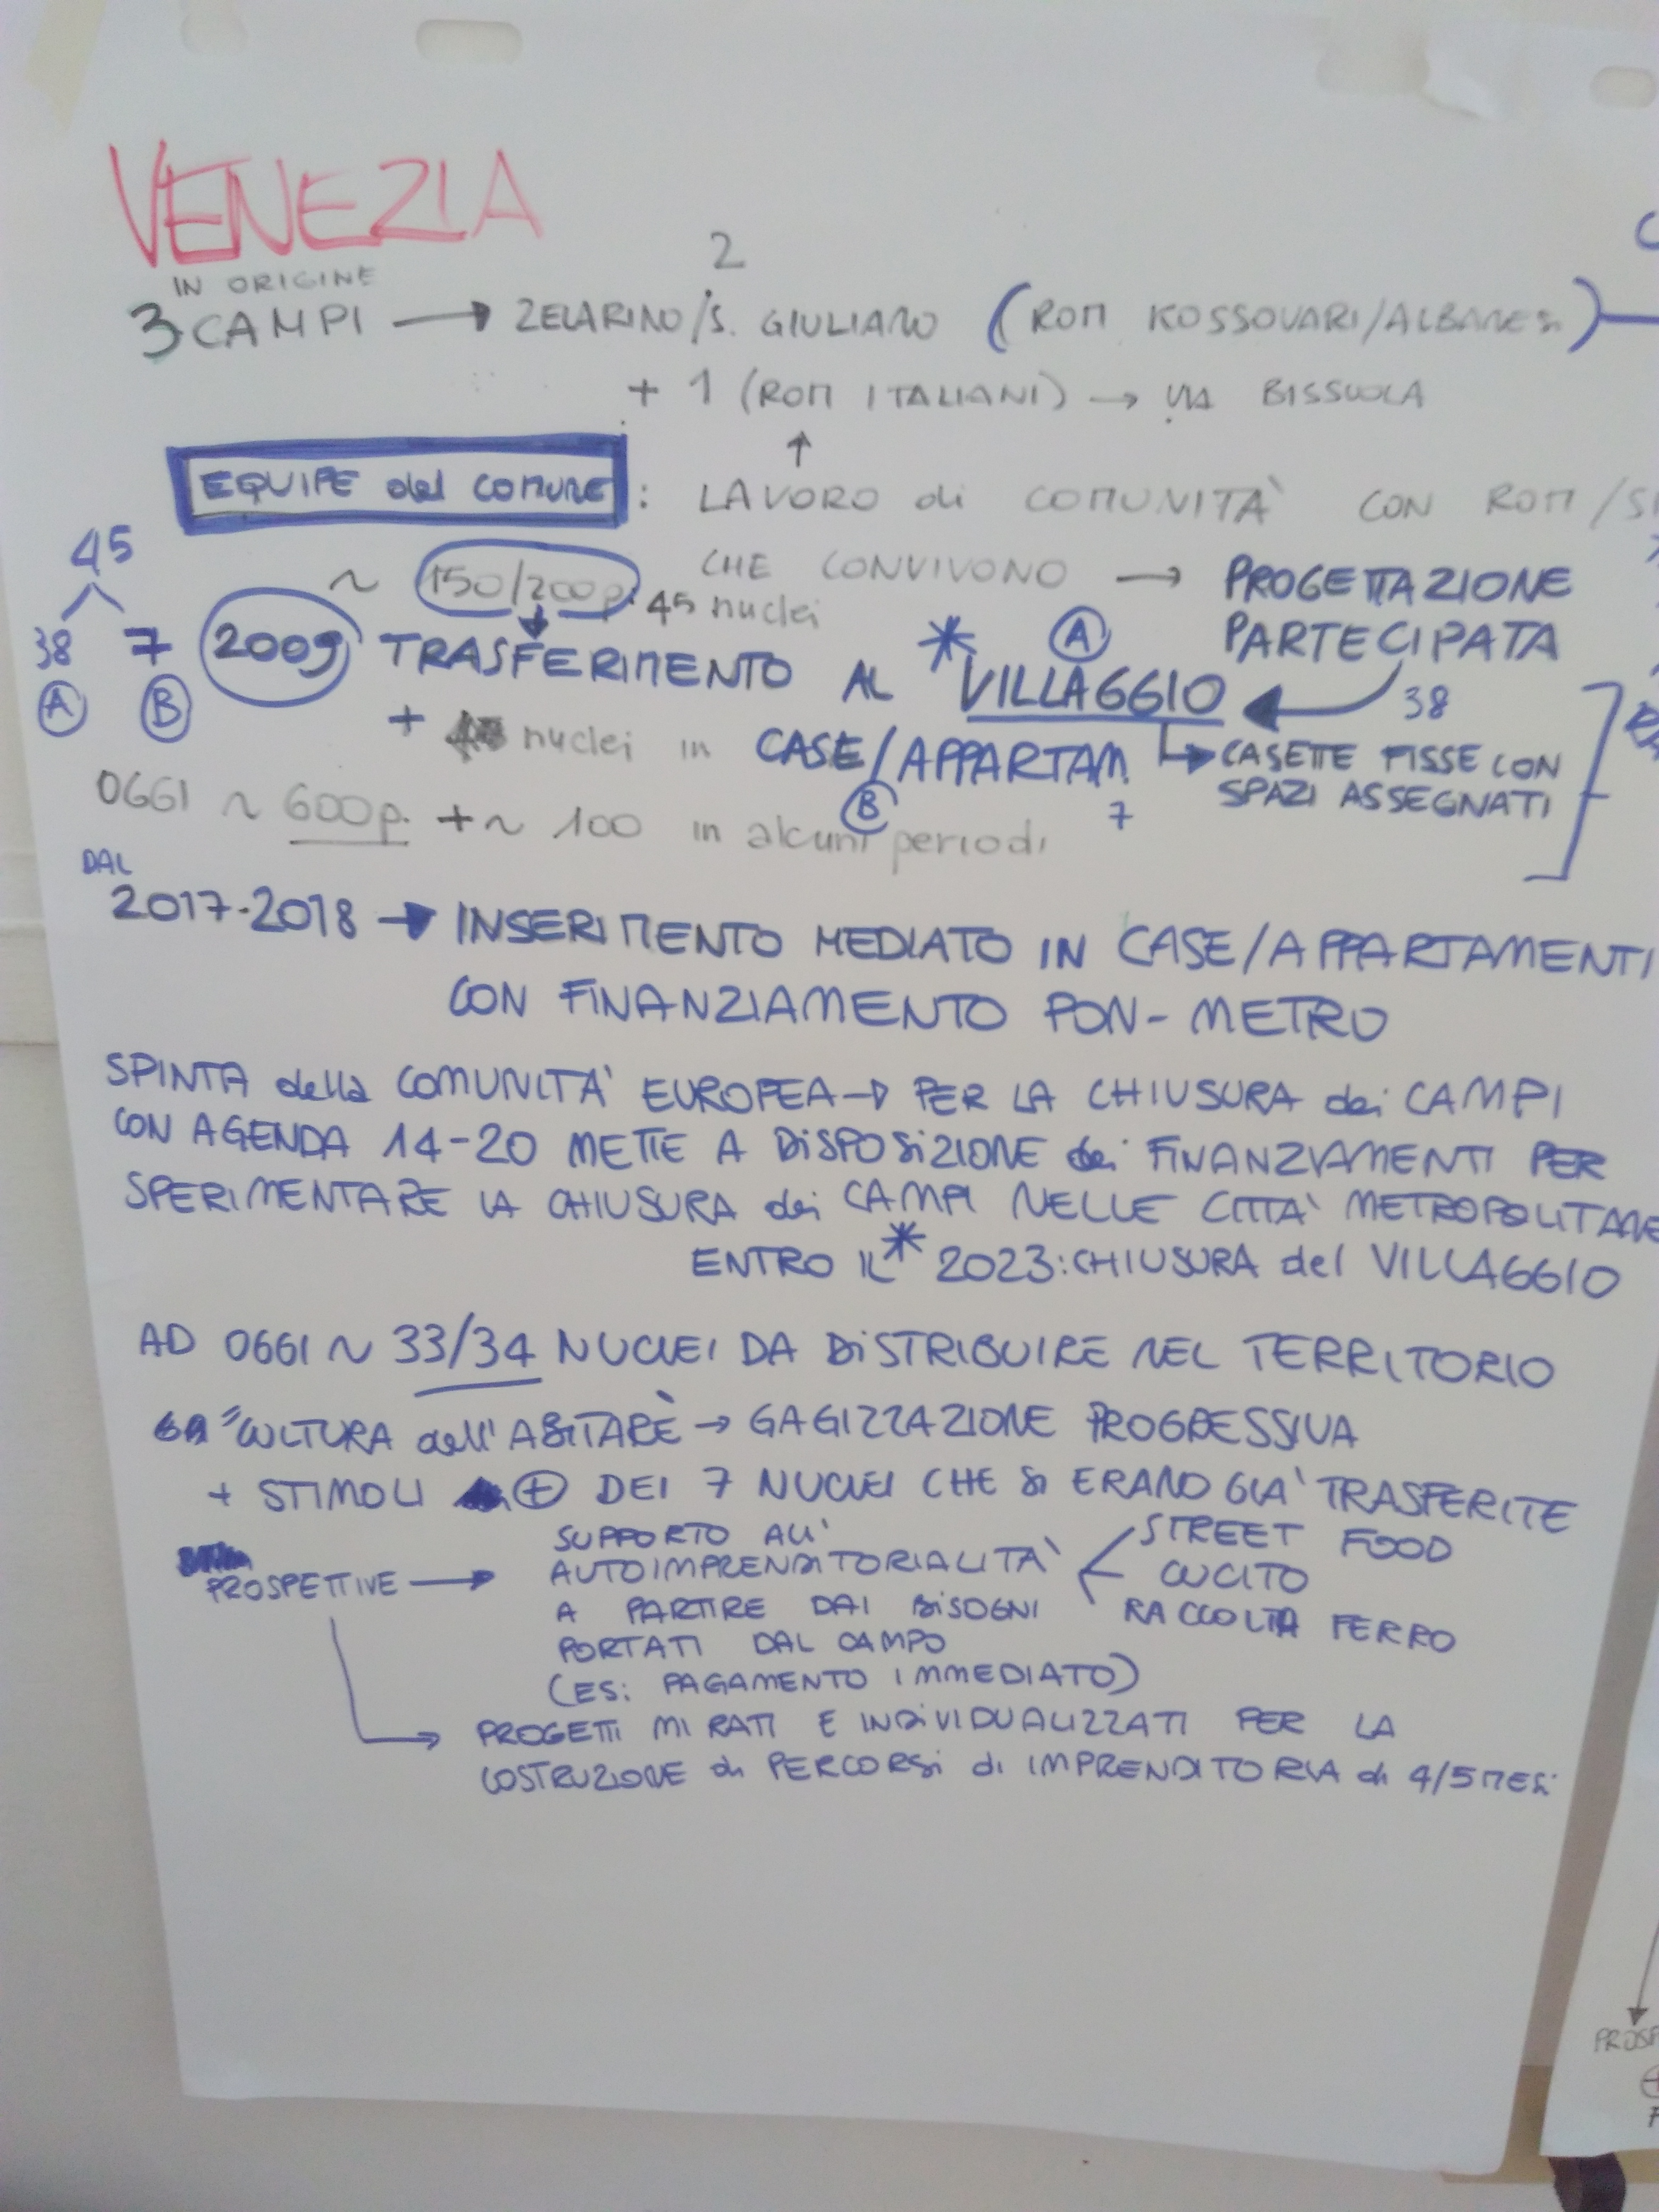 VENEZIA
IN ORIGINE
2
3 CAMPI → ZELARINO/S. GIULIANO (ROM KOSSOVARI/ALBANESI)
+ 1 (ROM ITALIANI) → VIA BISSUOLA
↑
EQUIPE del COMUNE : LAVORO di COMUNITÀ CON ROM /
CHE CONVIVONO → PROGETTAZIONE
PARTECIPATA
45
38 7
A B
~ 150/200p. 45 nuclei
2009 TRASFERIMENTO AL * VILLAGGIO
A
38
+ nuclei in CASE/APPARTAM.
B 7
CASETTE FISSE CON
SPAZI ASSEGNATI
OGGI ~ 600p. + ~ 100 in alcuni periodi
DAL
2017-2018 → INSERIMENTO MEDIATO IN CASE/APPARTAMENTI
CON FINANZIAMENTO PON-METRO
SPINTA della COMUNITÀ EUROPEA → PER LA CHIUSURA dei CAMPI
CON AGENDA 14-20 METTE A DISPOSIZIONE dei FINANZIAMENTI PER
SPERIMENTARE LA CHIUSURA dei CAMPI NELLE CITTÀ METROPOLITANE
ENTRO IL * 2023: CHIUSURA del VILLAGGIO
AD OGGI ~ 33/34 NUCLEI DA DISTRIBUIRE NEL TERRITORIO
"CULTURA dell'ABITARE" → GAGIZZAZIONE PROGRESSIVA
+ STIMOLI ⊕ DEI 7 NUCLEI CHE SI ERANO GIÀ TRASFERITE
PROSPETTIVE → SUPPORTO ALL'
AUTOIMPRENDITORIALITÀ
A PARTIRE DAI BISOGNI
PORTATI DAL CAMPO
(ES: PAGAMENTO IMMEDIATO)
STREET FOOD
CUCITO
RACCOLTA FERRO
→ PROGETTI MIRATI E INDIVIDUALIZZATI PER LA
COSTRUZIONE di PERCORSI di IMPRENDITORIA di 4/5 MESI